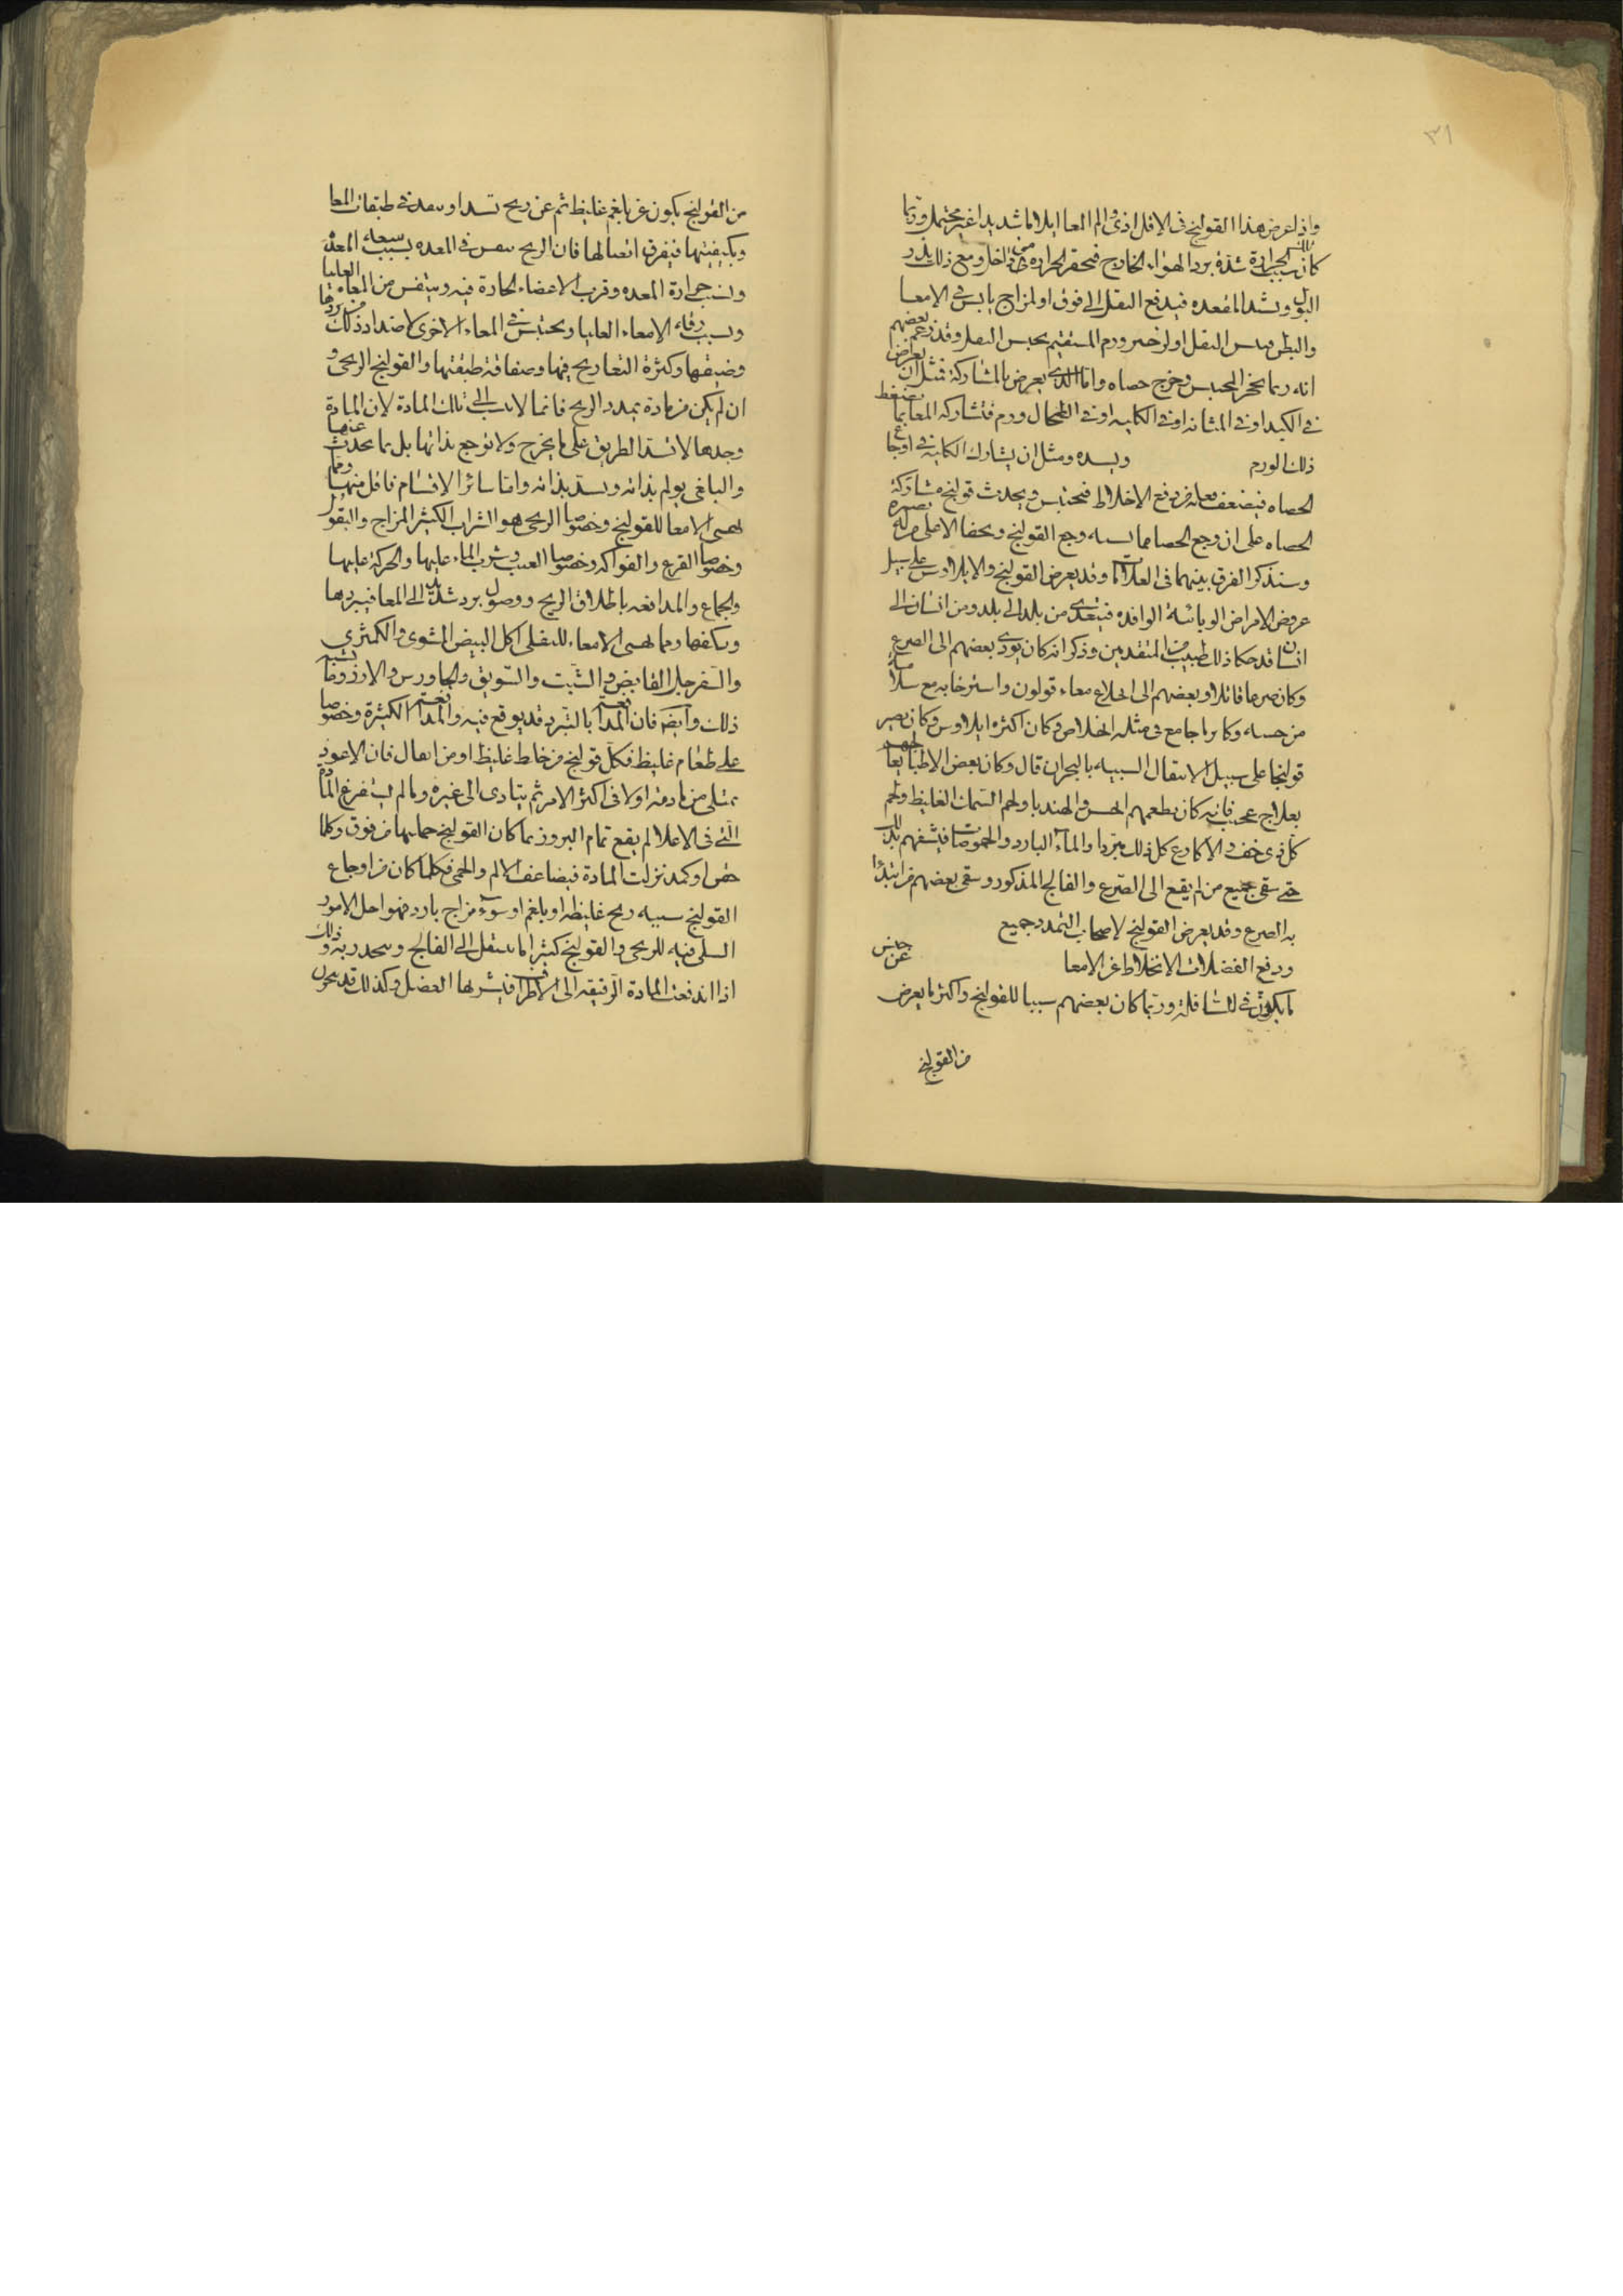 ٣١
واذا عرض هذا القولنج فى الاقل اذى والم المعا ايلاما شديدا غير محتمل وربما
كان الحرارة شدة برد الهواء الخارج فتحقن الحرارة داخل ومع ذلك يدر
البول ويشد المقعده فيدفع الثقل الى فوق او لمزاج يابس فى الامعا
والبطن الثقل او لورم المستقيم يحبس الثقل وقد زعم بعضهم
انه ربما تحجر المحتبس وخرج حصاه واما الذى يعرض بالمشاركة فمثل ان يعرض
فى الكبد او فى المثانه او فى الكليه او فى الطحال ورم فتشاركه المعا بما يضغط
ذلك الورم ويسده ومثل ان يشارك الكليه فى اوجاع
الحصاه فيضعف فعله فى دفع الاخلاط فتحتبس ويحدث قولنج مشاركة
الحصاه على ان وجع الحصا مما يشبه وجع القولنج ويخفا الا على من له بصيره
وسنذكر الفرق بينهما فى العلامات وقد يعرض القولنج والايلاوس على سبيل
عروض الامراض الوبائية الوافده فيتعدى من بلد الى بلد ومن انسان الى
انسان قد حكا ذلك طبيب من المتقدمين وذكر انه كان يودى بعضهم الى الصرع
وكان صرعا قاتلا وبعضهم الى انخلاع معاء قولون واسترخايه مع سلامة
من حسه وكان فى مثله الخلاص وكان اكثره ايلاوس وكان يصير
قولنجا على سبيل الانتقال الشبيه بالبحران قال وكان بعض الاطبا يعالجهم
بعلاج عجيب فانه كان يطعمهم الخس والهندبا ولحم السمك الغليظ ولحم
كل ذى خف والاكارع كل ذلك مبردا والماء البارد والحموضات فيشفيهم بذلك
حتى شفى جميع من لم يقع الى الصرع والفالج المذكور وشفى بعضهم من ابتدا
به الصرع وقد يعرض القولنج لاصحاب التمدد جميع
ودفع الفضلات الاخلاط عن الامعا
ما يكون فى السافلة وربما كان بعضهم سببا للقولنج واكثر ما يعرض
من القولنج
من القولنج يكون عن بلغم غليظ ثم عن ريح تسد او تنفذ فى طبقات المعا
وكيفيتها فيفرق اتصالها فان الريح فى المعده بسبب سعة المعده
وبسبب حرارة المعده وقرب الاعضاء الحارة فيه ويتنفس من المعاء العليا
وبسبب رقة الامعاء العليا ويحتبس فى المعاء الاخرى لاضداد ذلك من بردها
وضيقها وكثرة التعاريج فيها وصفاقة طبقتها والقولنج الريحى
ان لم يكن من مادة تمدد الريح فانما لا ينسب الى تلك المادة لان المادة
وحدها لا تسد الطريق على ما يخرج ولا توجع بذاتها بل بما يحدث عنها
والبلغمى يولم بذاته ويسد بذاته واما سائر الاقسام فاقل منهما ومما
يهيى الامعا للقولنج وخصوصا الريحى هو الشراب الكثير المزاج والبقول
وخصوصا القرع والفواكه وخصوصا العنب وشرب الماء عليها والحركة عليها
والجماع والمدافعه باطلاق الريح ووصول برد شديد الى المعا فيبردها
ويكثفها ومما يهيى الامعاء للثفلى اكل البيض المشوى والكمثرى
والسفرجل القابض والشبت والسويق والجاورس والارز وما يشبه
ذلك وايضا فان المدافعة بالتبرز قد يوقع فيه والمدافعة الكثيرة وخصوصا
على طعام غليظ فكل قولنج من خلط غليظ او من اثفال فان الاعور
يمتلى من مادته اولا فى اكثر الامر ثم يتادى الى غيره وما لم يستفرغ المادة
التى فى الاعلا لم يقع تمام البروز فما كان القولنج حمايها من فوق وكلما
حقن او كمد نزلت المادة فيضاعف الالم والحمى فكلما كان من اوجاع
القولنج سببه ريح غليظه او بلغم او سوء مزاج بارد فهو احد الامور
فيه للريحى والقولنج كثيرا ما ينتقل الى الفالج ذلك
اذا اندفعت المادة الرقيقه الى الاطراف فيشربها العضل وكذلك قد